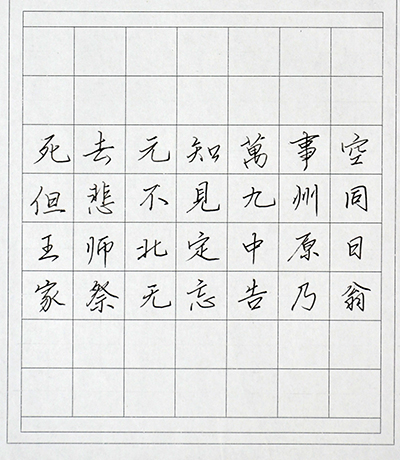 死去元知萬事空
但悲不見九州同
王師北定中原日
家祭无忘告乃翁